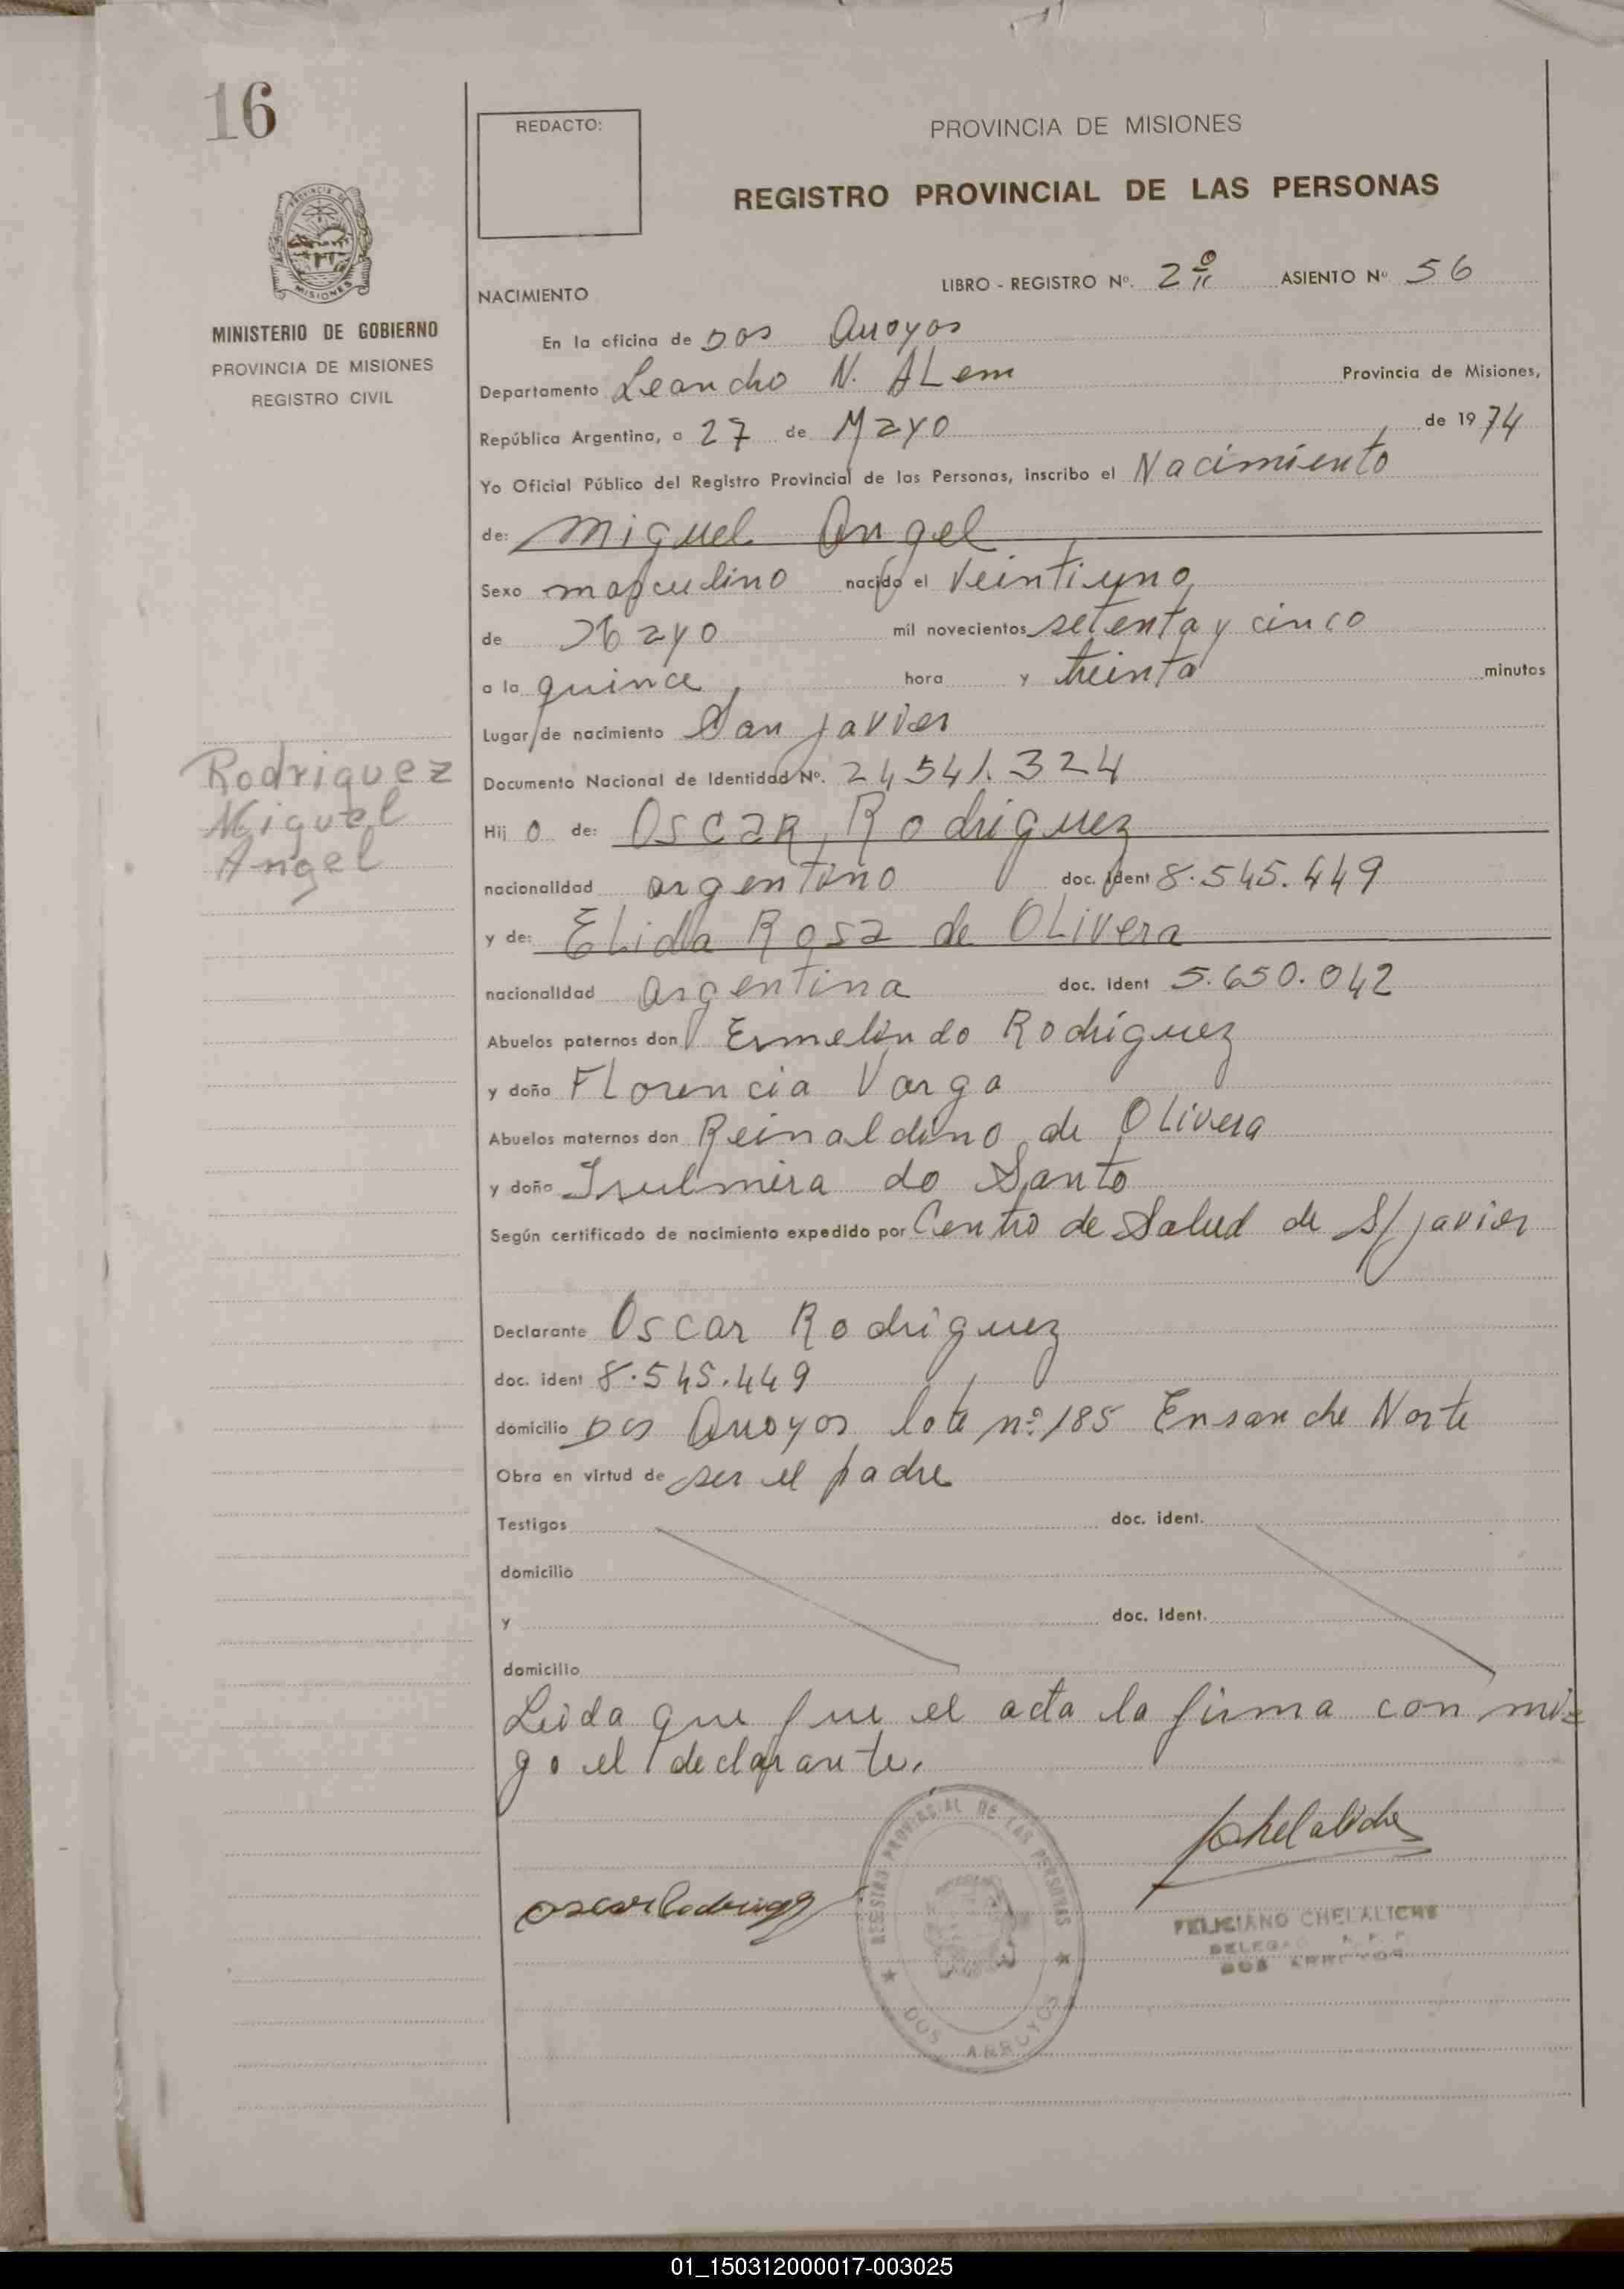 16
REDACTO:
PROVINCIA DE MISIONES
REGISTRO PROVINCIAL DE LAS PERSONAS
PROVINCIA DE
MISIONES
MINISTERIO DE GOBIERNO
PROVINCIA DE MISIONES
REGISTRO CIVIL
LIBRO - REGISTRO Nº. 2º II ASIENTO Nº 56
NACIMIENTO
En la oficina de Dos Arroyos
Departamento Leandro N. ALem Provincia de Misiones,
República Argentina, a 27 de Mayo de 1974
Yo Oficial Público del Registro Provincial de las Personas, inscribo el Nacimiento
de: Miguel Angel
Sexo masculino nacido el Veintiuno
de Mayo mil novecientos setenta y cinco
a la quince hora y treinta minutos
Lugar de nacimiento San Javier
Documento Nacional de Identidad Nº. 24541.324
Rodriguez
Miguel
Angel
Hij o de: Oscar Rodriguez
nacionalidad argentino doc. ident 8.545.449
y de: ELida Rosa de OLivera
nacionalidad argentina doc. ident 5.650.042
Abuelos paternos don Ermelindo Rodriguez
y doña FLorencia Varga
Abuelos maternos don Reinaldino de OLivera
y doña do Santo
Según certificado de nacimiento expedido por Centro de Salud de S/Javier
Declarante Oscar Rodriguez
doc. ident 8.545.449
domicilio Dos Arroyos lote nº 185 Ensanche Norte
Obra en virtud de ser el padre
Testigos doc. ident.
domicilio
y doc. ident.
domicilio
Leida que fue el acta la firma con mi=
go el declarante.
Chelaliche
Oscar Rodriguez
REGISTRO PROVINCIAL DE LAS PERSONAS
DOS ARROYOS
FELICIANO CHELALICHE
DOS ARROYOS
01_150312000017-003025